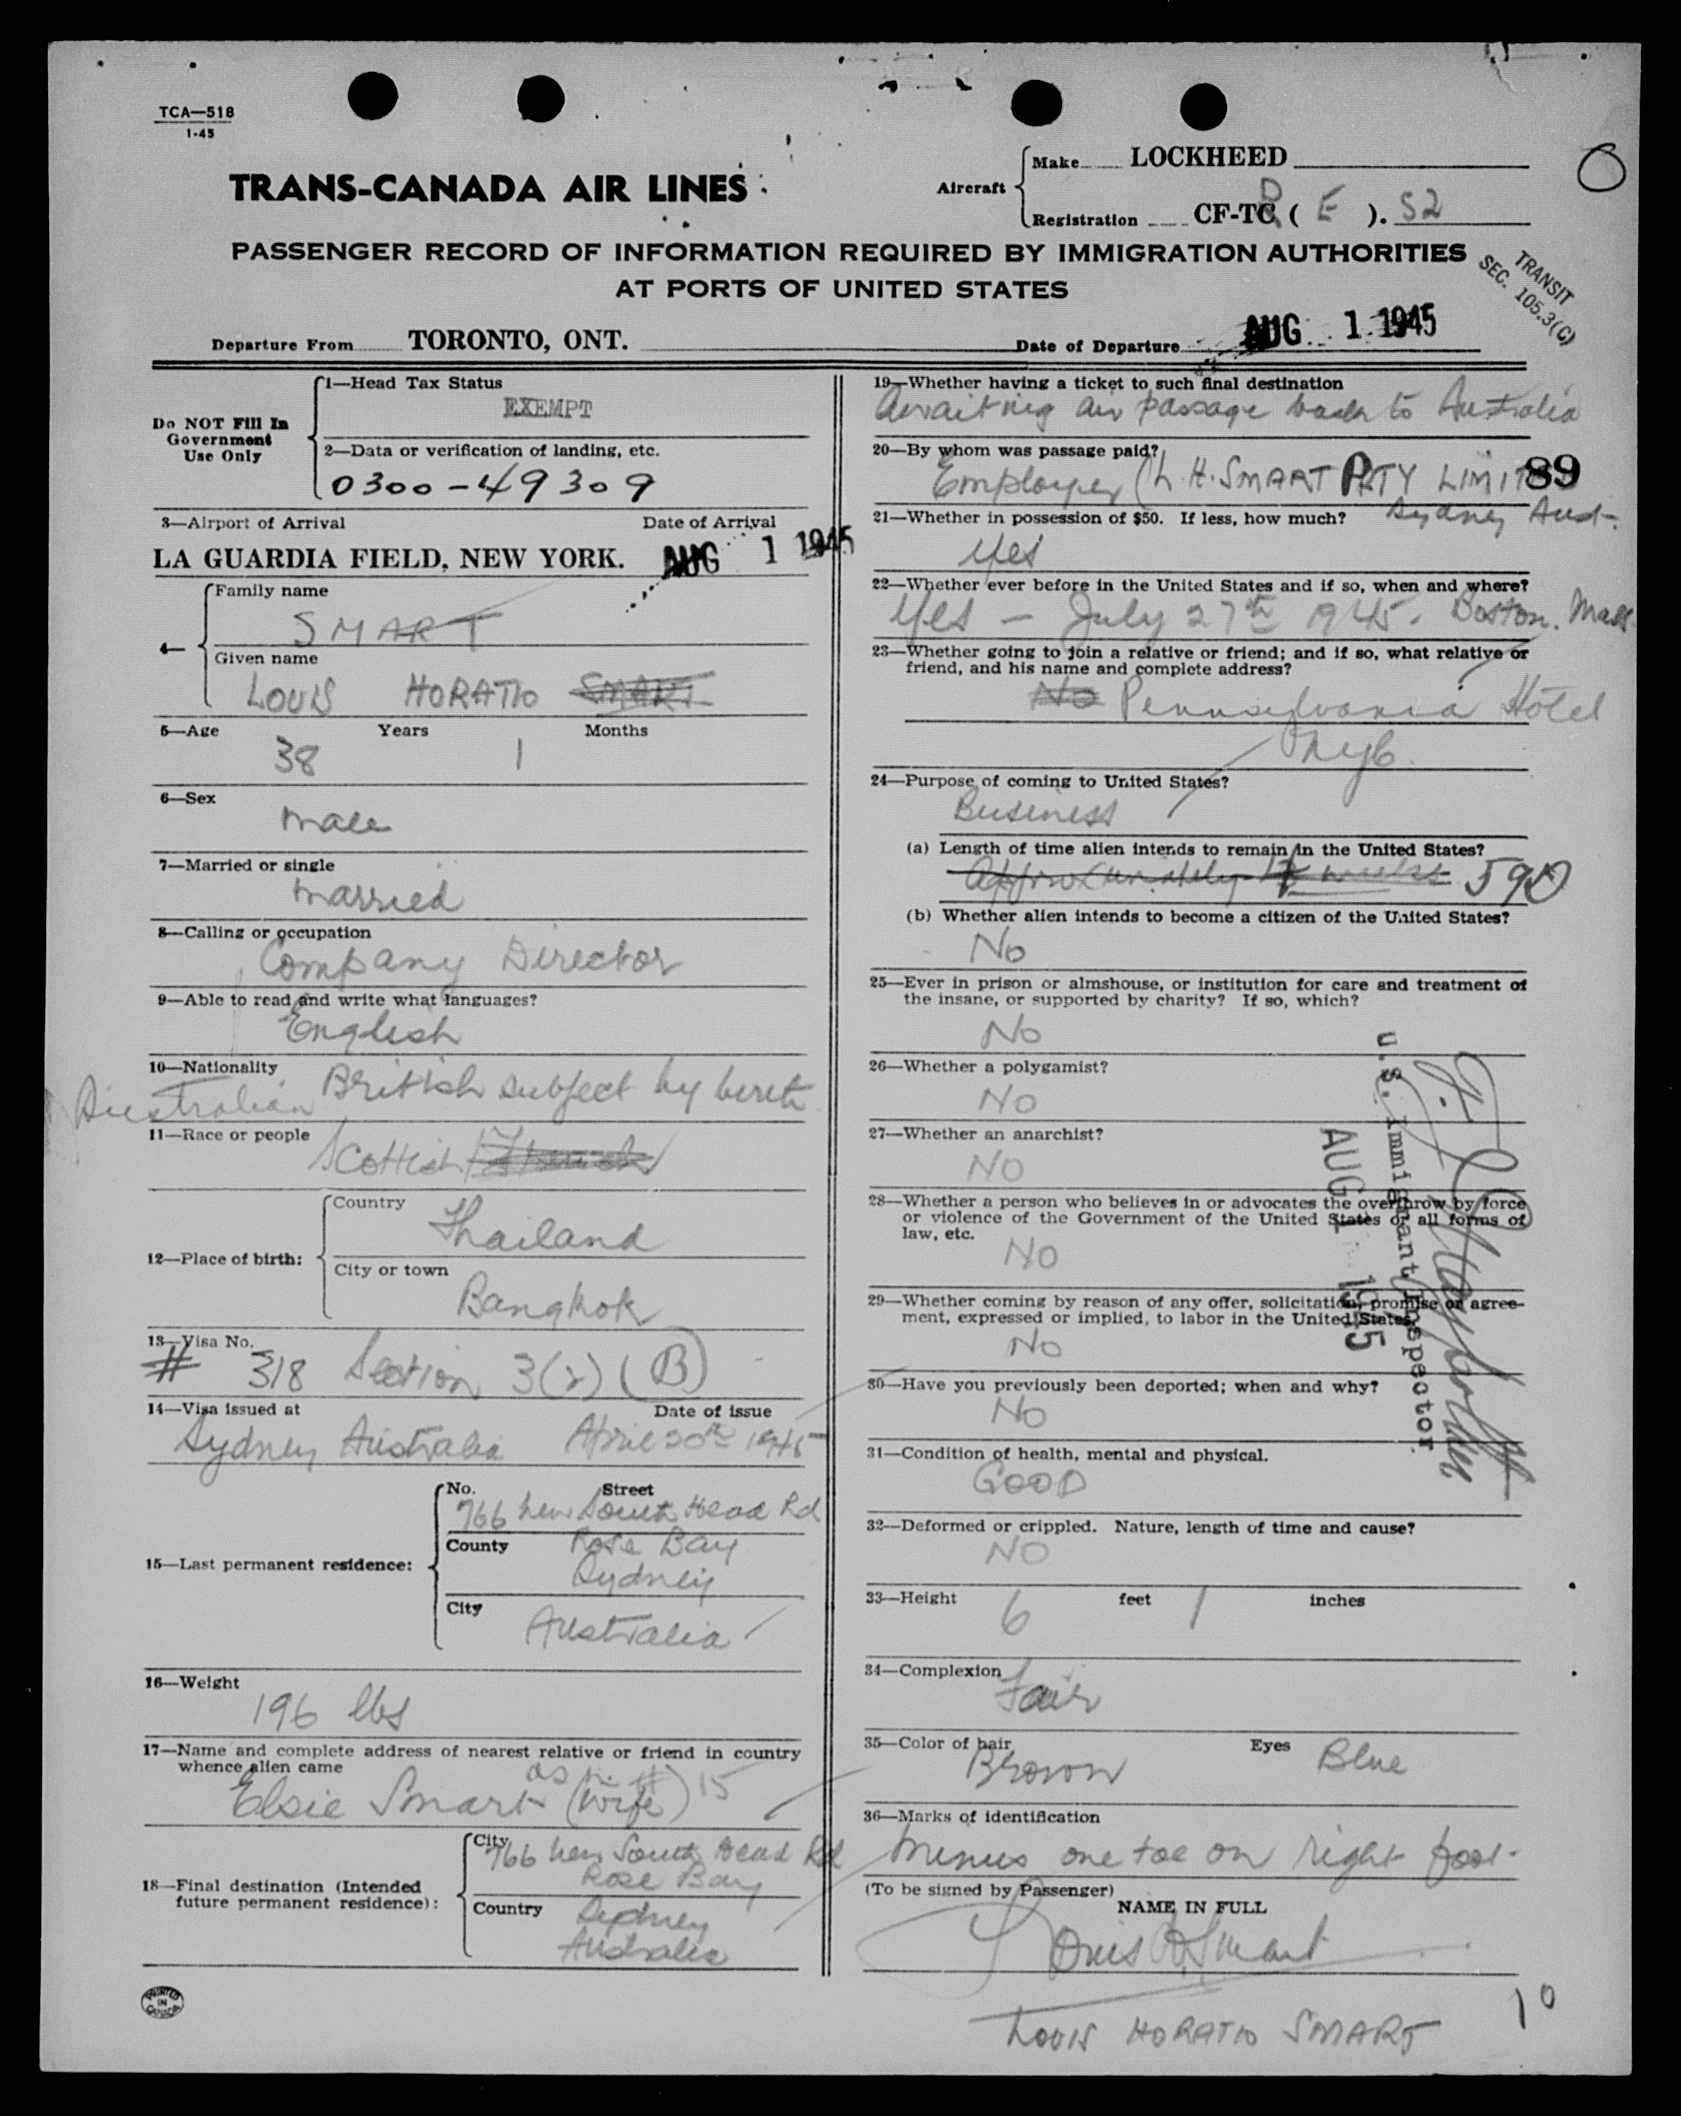 TCA—518
1-45
TRANS-CANADA AIR LINES
Aircraft
Make LOCKHEED
Registration CF-TC ( E ). 52
PASSENGER RECORD OF INFORMATION REQUIRED BY IMMIGRATION AUTHORITIES
AT PORTS OF UNITED STATES
TRANSIT
SEC. 105.3(C)
Departure From TORONTO, ONT.
Date of Departure AUG 1 1945
Do NOT Fill In
Government
Use Only
1—Head Tax Status
EXEMPT
2—Data or verification of landing, etc.
0300-49309
3—Airport of Arrival Date of Arrival
LA GUARDIA FIELD, NEW YORK. AUG 1 1945
4—
Family name
SMART
Given name
LOUIS HORATIO SMART
5—Age Years Months
38 1
6—Sex
Male
7—Married or single
Married
8—Calling or occupation
Company Director
9—Able to read and write what languages?
English
10—Nationality
Australian British subject by birth
11—Race or people
Scottish
12—Place of birth:
Country
Thailand
City or town
Bangkok
13—Visa No.
# 318 Section 3(2) (B)
14—Visa issued at Date of issue
Sydney Australia April 20th 1945
15—Last permanent residence:
No. Street
766 New South Head Rd
County Rose Bay
Sydney
City
Australia
16—Weight
196 lbs
17—Name and complete address of nearest relative or friend in country
whence alien came
as in # 15
Elsie Smart (Wife)
18—Final destination (Intended
future permanent residence):
City
766 New South Head Rd
Rose Bay
Country Sydney
Australia
PRINTED
IN
CANADA
19—Whether having a ticket to such final destination
Awaiting air passage back to Australia
20—By whom was passage paid?
Employer (L.H. SMART PTY LIMIT
89
Sydney Aust.
21—Whether in possession of $50. If less, how much?
Yes
22—Whether ever before in the United States and if so, when and where?
Yes - July 27th 1945. Boston. Mass.
23—Whether going to join a relative or friend; and if so, what relative or
friend, and his name and complete address?
No Pennsylvania Hotel
NYC
24—Purpose of coming to United States?
Business
(a) Length of time alien intends to remain in the United States?
Approximately weeks 59D
(b) Whether alien intends to become a citizen of the United States?
No
25—Ever in prison or almshouse, or institution for care and treatment of
the insane, or supported by charity? If so, which?
No
26—Whether a polygamist?
No
27—Whether an anarchist?
NO
28—Whether a person who believes in or advocates the overthrow by force
or violence of the Government of the United States or all forms of
law, etc.
NO
29—Whether coming by reason of any offer, solicitation, promise or agree-
ment, expressed or implied, to labor in the United States.
No
30—Have you previously been deported; when and why?
No
31—Condition of health, mental and physical.
GOOD
32—Deformed or crippled. Nature, length of time and cause?
NO
33—Height 6 feet 1 inches
34—Complexion
Fair
35—Color of hair Eyes
Brown Blue
36—Marks of identification
Minus one toe on right foot.
(To be signed by Passenger)
NAME IN FULL
Louis H. Smart
LOUIS HORATIO SMART
10
U.S. Immigrant Inspector
AUG 1 1945